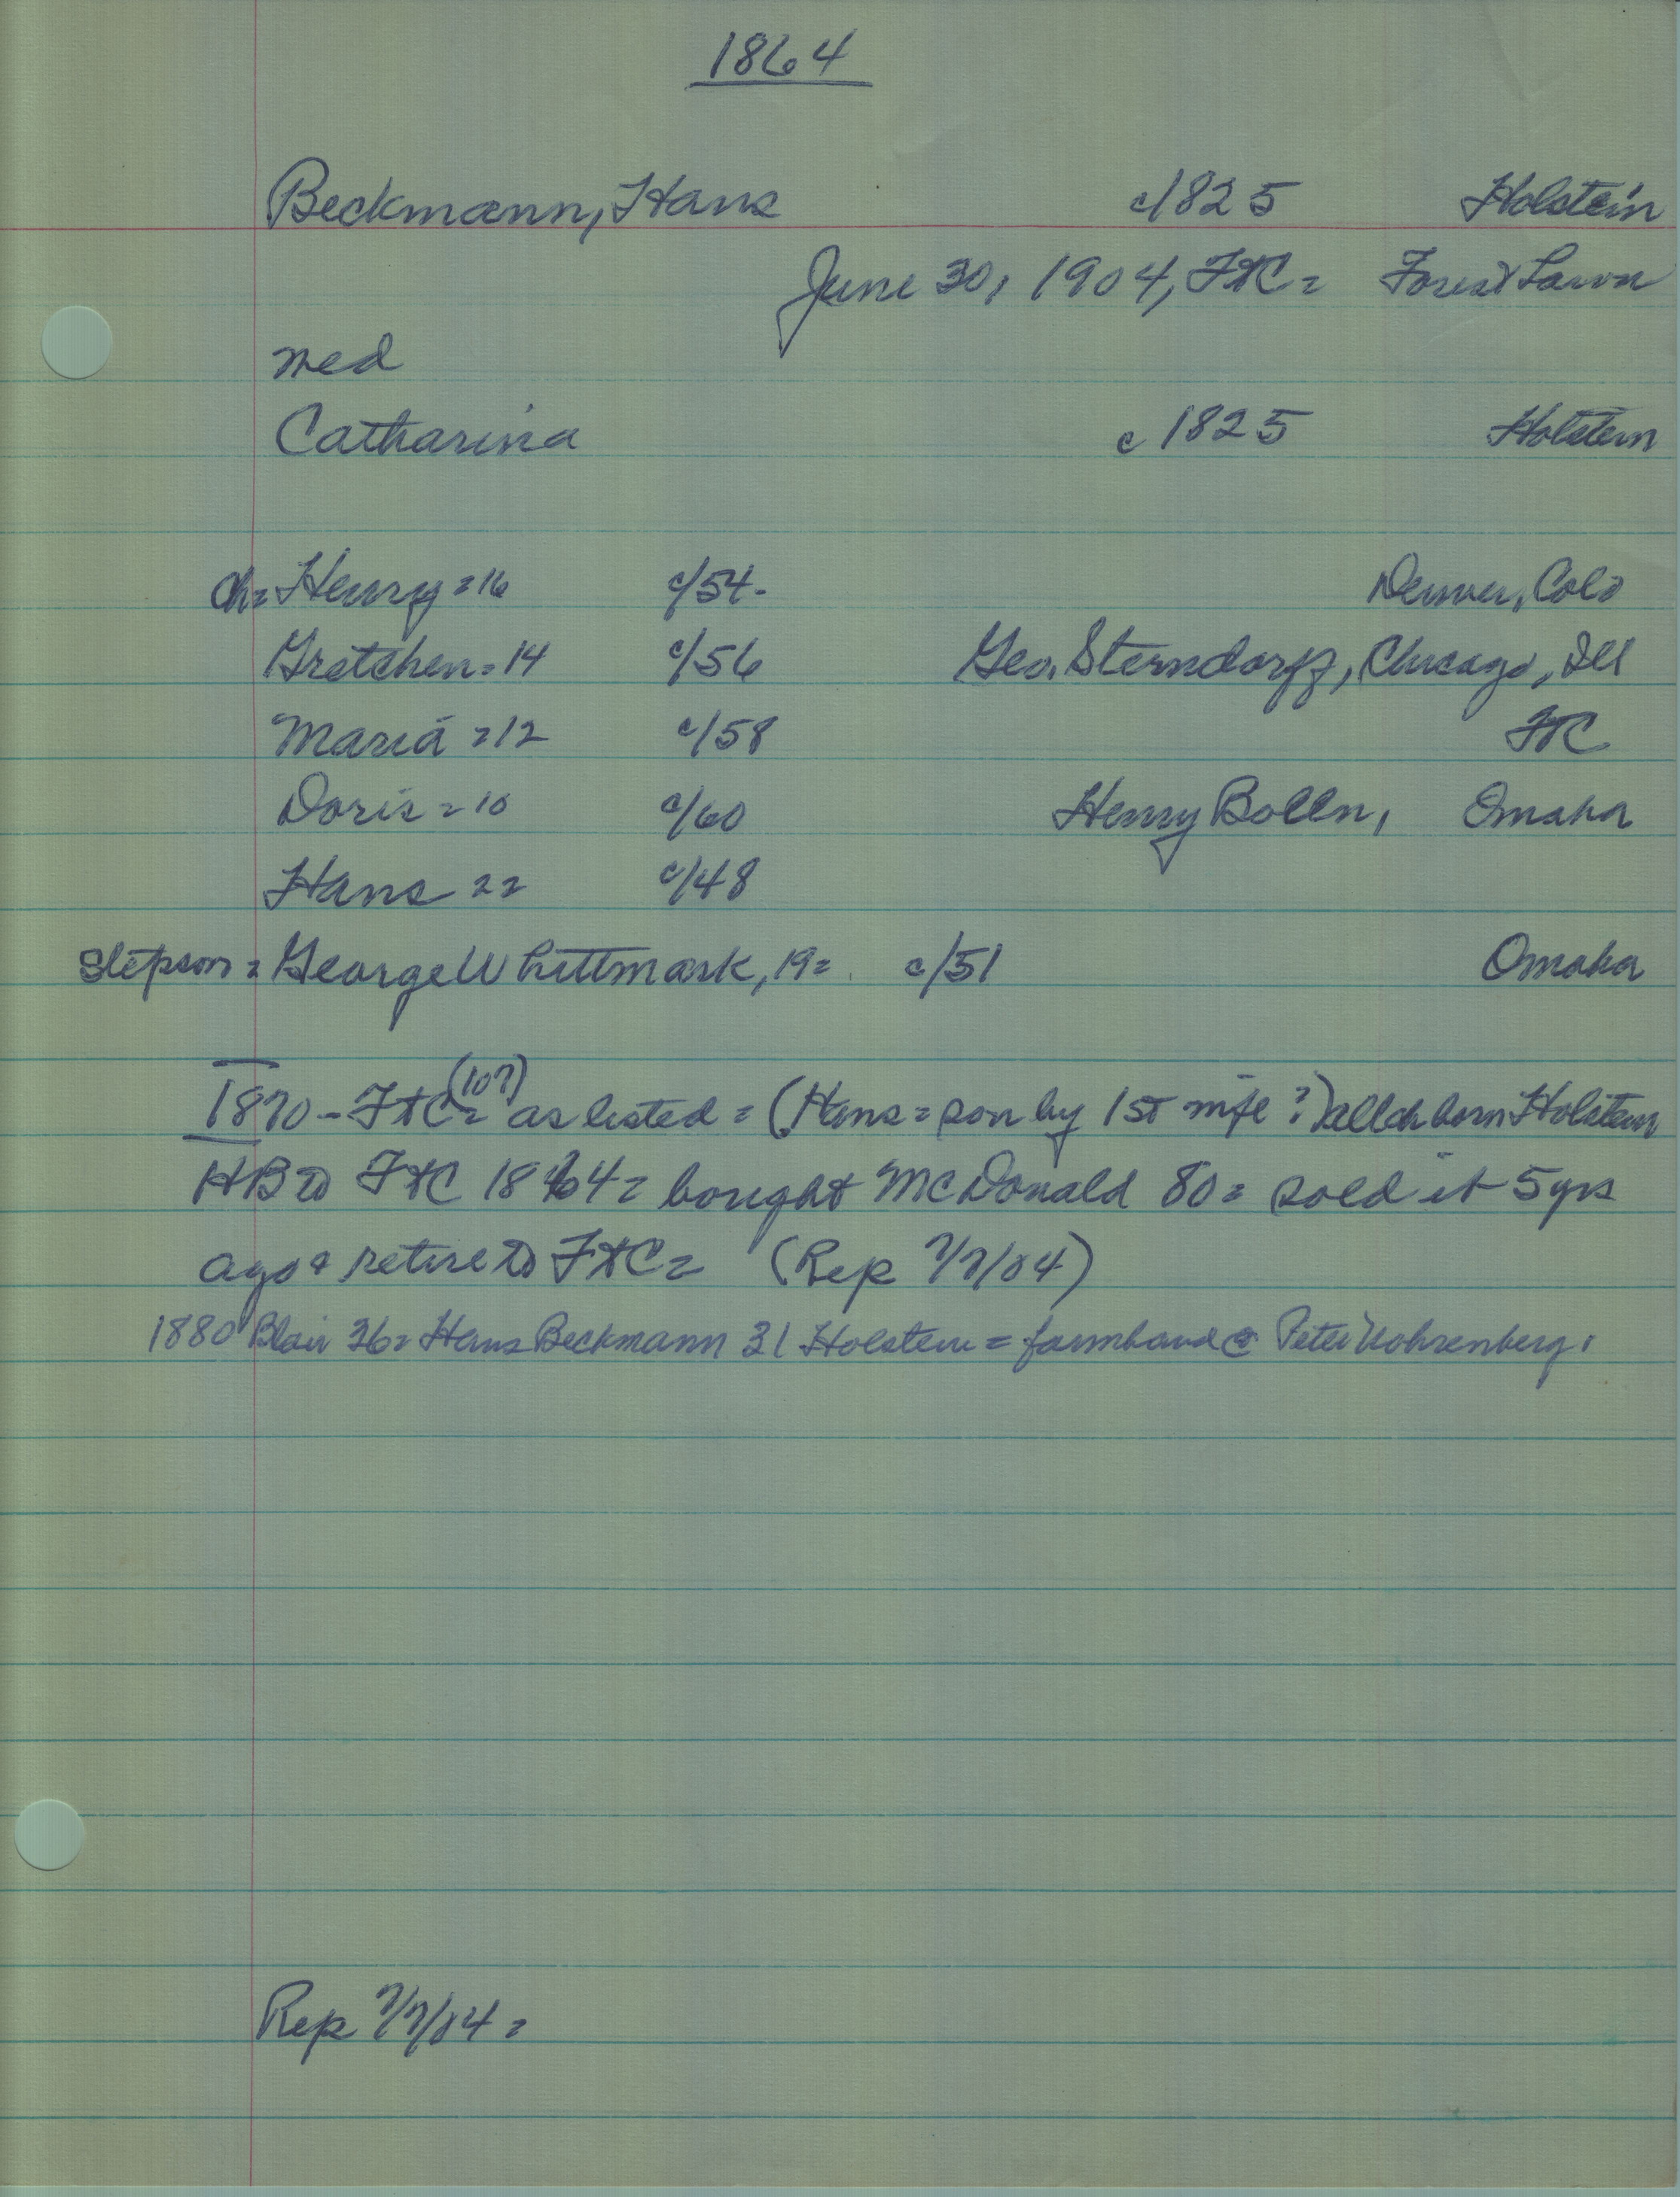 1864
Beckmann, Hans c/1825 Holstein
June 30, 1904, FtC = Forest Lawn
med
Catharina c 1825 Holstein
ch = Henry = 16 c/54. Denver, Colo
Gretchen = 14 c/56 Geo. Sterndorff, Chicago, Ill
Maria = 12 c/58 FtC
Doris = 10 c/60 Henry Bolln, Omaha
Hans 22 c/48
Stepson = George Whittmark, 19 = c/51 Omaha
1870 - FtC (107) = as listed = (Hans = son by 1st wife?) all ch born Holstein
HB to FtC 1864 = bought McDonald 80 = sold it 5 yrs
ago & retire to FtC = (Rep 7/7/04)
1880 Blair 36 = Hans Beckmann 31 Holstein = farmhand @ Peter Wohrenberg.
Rep 7/7/04 =